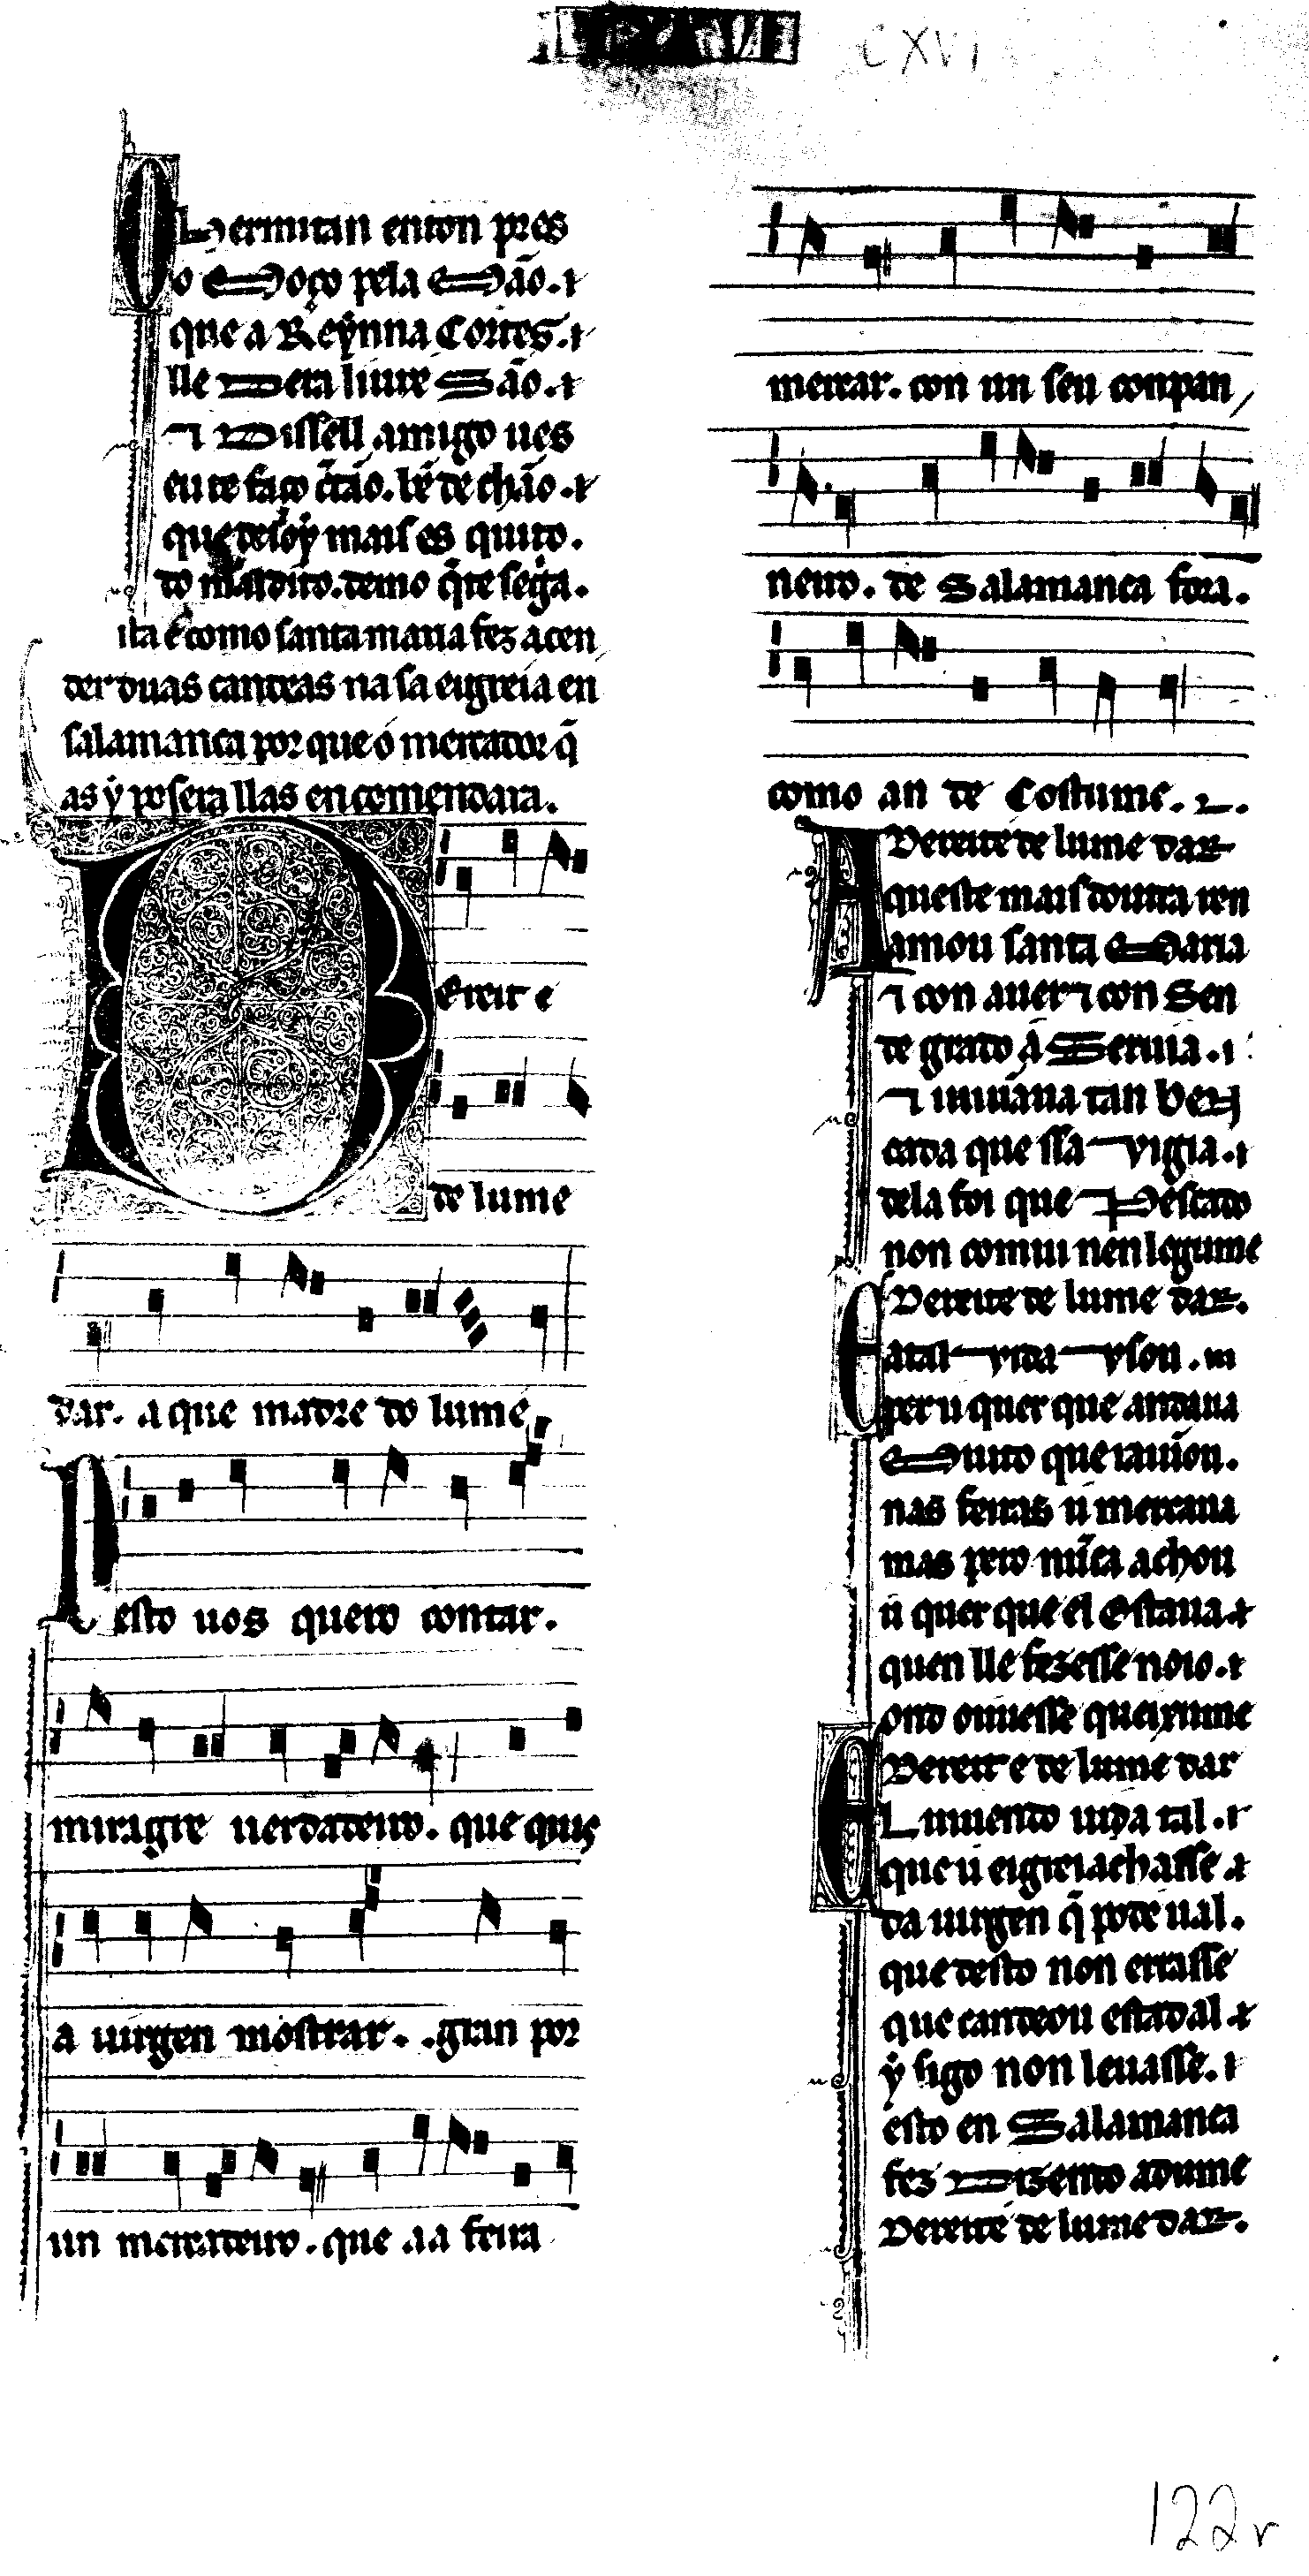 CXVI
O Hermitan enton pres
o Moço pela Mão. ⁊
que a Reỹnna Cortes. ⁊
lle Dera liure São. ⁊
⁊ Dissell amigo ues
eu te faço c̃tão. bẽ de chão. ⁊
que desoy mais es quito.
do maldito. demo q̃ te segia.
sta é como santa maria fez acen
der duas candeas na sa eigreia en
salamanca por que o mercador q̃
as ý posera llas encomendara.
Dereit e
de lume
dar. a que madre do lume
Desto uos quero contar.
miragre uerdadeiro. que quis
a uirgen mostrar. . gran por
un mercadeiro. que aa feira
mercar. con un seu conpan
neiro. de Salamanca fora.
como an de Costume.
Dereite de lume dar
A queste mais doutra ren
amou santa Maria
⁊ con auer ⁊ con Sen
de grado á Seruia.
⁊ iuiũaua tan ben
cada que ssa vigia.
dela foi que Pescado
non comiu nen legume
Dereite de lume dar.
E atal vida vsou. m
per u quer que andaua
Muito que rauion.
nas feiras u mercaua
mas pero nũca achou
u quer que el Estaua ⁊
quen lle fezesse noio. ⁊
ond ouuesse queixume
Dereit e de lume dar
EL inuendo uida tal. ⁊
que u eigreiachasse ⁊
da uirgen q̃ pode ual.
que desto non errasse
que candeou estadal ⁊
ý sigo non leuasse.
esto en Salamanca
fez Dizendo adume
Dereite de lume dar.
122r